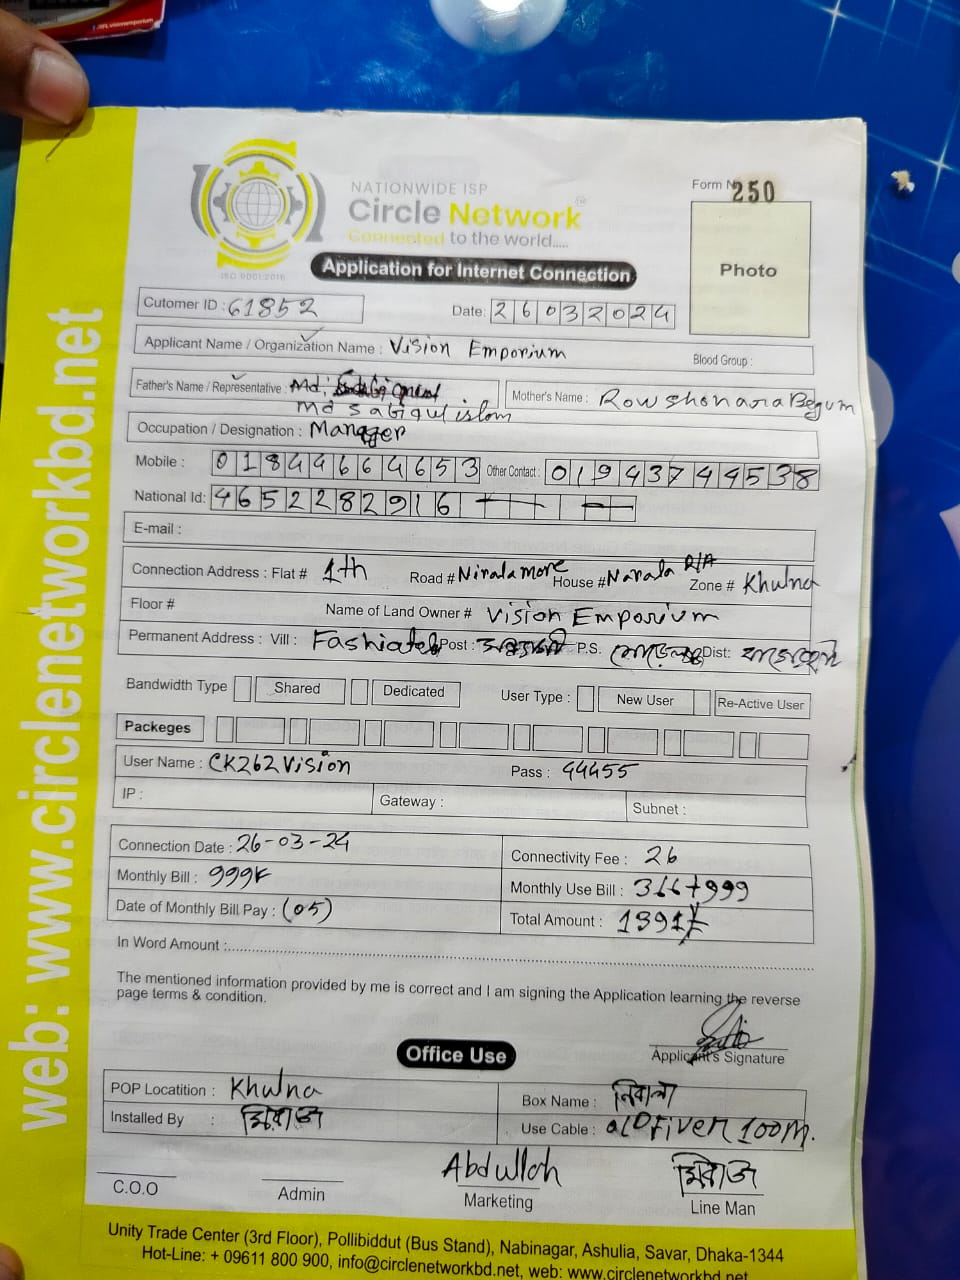 Form No 250
NATIONWIDE ISP
Circle Network
Connected to the world.....
ISO 9001:2015
Photo
Application for Internet Connection
Cutomer ID : 61852
Date: 26032024
Applicant Name / Organization Name : Vision Emporium
Blood Group :
Father's Name / Representative : Md;
Md Sabiqul islam
Mother's Name : Rowshonara Begum
Occupation / Designation : Manager
Mobile : 01844664653 Other Contact : 01943744538
National Id: 4652282916
E-mail :
Connection Address : Flat # 1th Road # Nirala more House # Narala R/A Zone # Khulna
Floor # Name of Land Owner # Vision Emporium
Permanent Address : Vill : Post : P.S. Dist:
Bandwidth Type Shared Dedicated User Type : New User Re-Active User
Packeges
User Name : CK262Vision Pass : 44455
IP : Gateway : Subnet :
Connection Date : 26-03-24 Connectivity Fee : 26
Monthly Bill : 999 Monthly Use Bill : 366+999
Date of Monthly Bill Pay : (05) Total Amount : 1391
In Word Amount :
The mentioned information provided by me is correct and I am signing the Application learning the reverse
page terms & condition.
Applicant's Signature
Office Use
POP Locatition : Khulna Box Name : নিরালা
Installed By : মিরাজ Use Cable : OLD Fiver 100M.
C.O.O Admin Abdullah Marketing মিরাজ Line Man
Unity Trade Center (3rd Floor), Pollibiddut (Bus Stand), Nabinagar, Ashulia, Savar, Dhaka-1344
Hot-Line: + 09611 800 900, info@circlenetworkbd.net, web: www.circlenetworkbd.net
web: www.circlenetworkbd.net